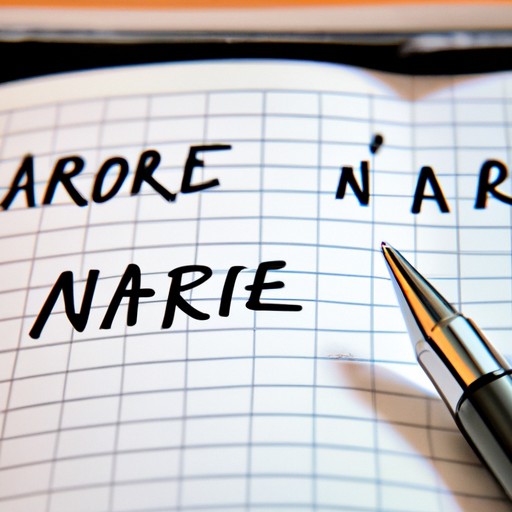 ARORE N'AR
NARIE